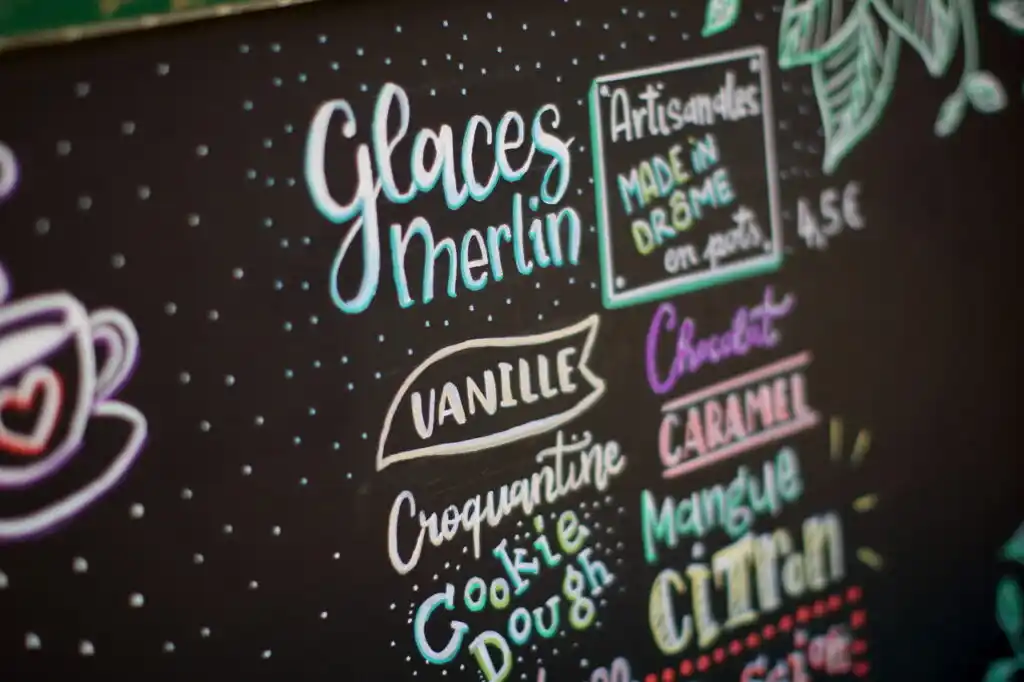 Glaces
Merlin
Artisanales
MADE iN
DRÔME
en pots
4,5€
VANILLE
Croquantine
Cookie
Dough
Chocolat
CARAMEL
Mangue
CiTron